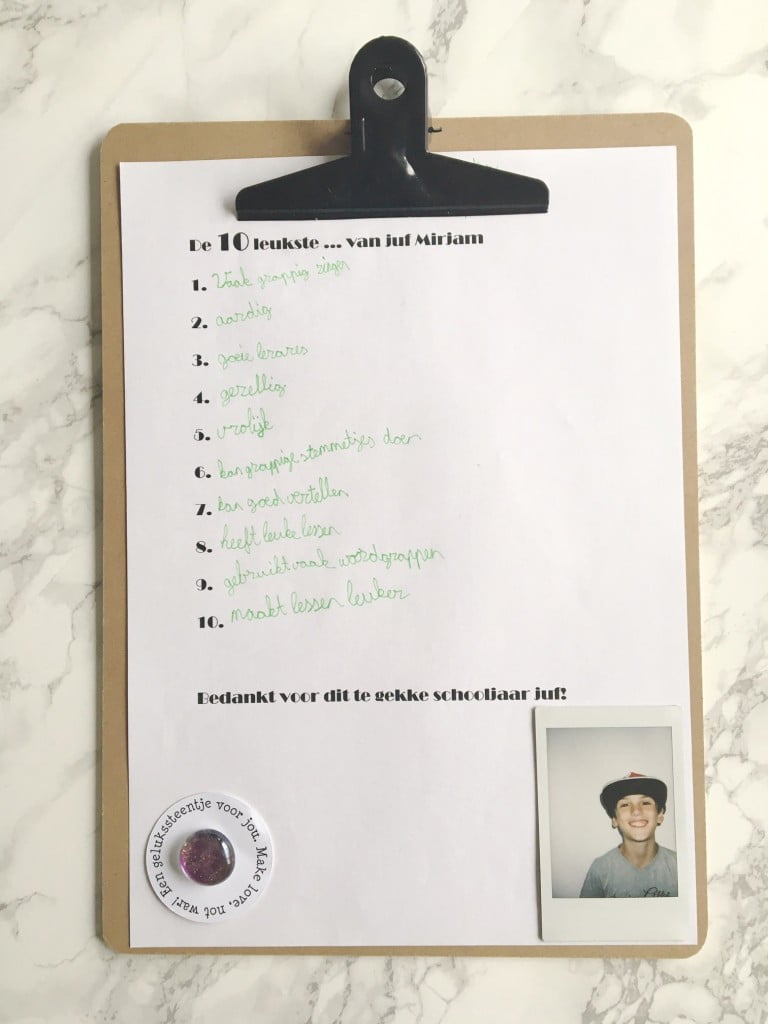 De 10 leukste ... van juf Mirjam
1. Vaak grappig zingen
2. aardig
3. goeie lerares
4. gezellig
5. vrolijk
6. kan grappige stemmetjes doen
7. kan goed vertellen
8. heeft leuke lessen
9. gebruikt vaak woordgrappen
10. maakt lessen leuker
Bedankt voor dit te gekke schooljaar juf!
Een gelukssteentje voor jou. Make love, not war!